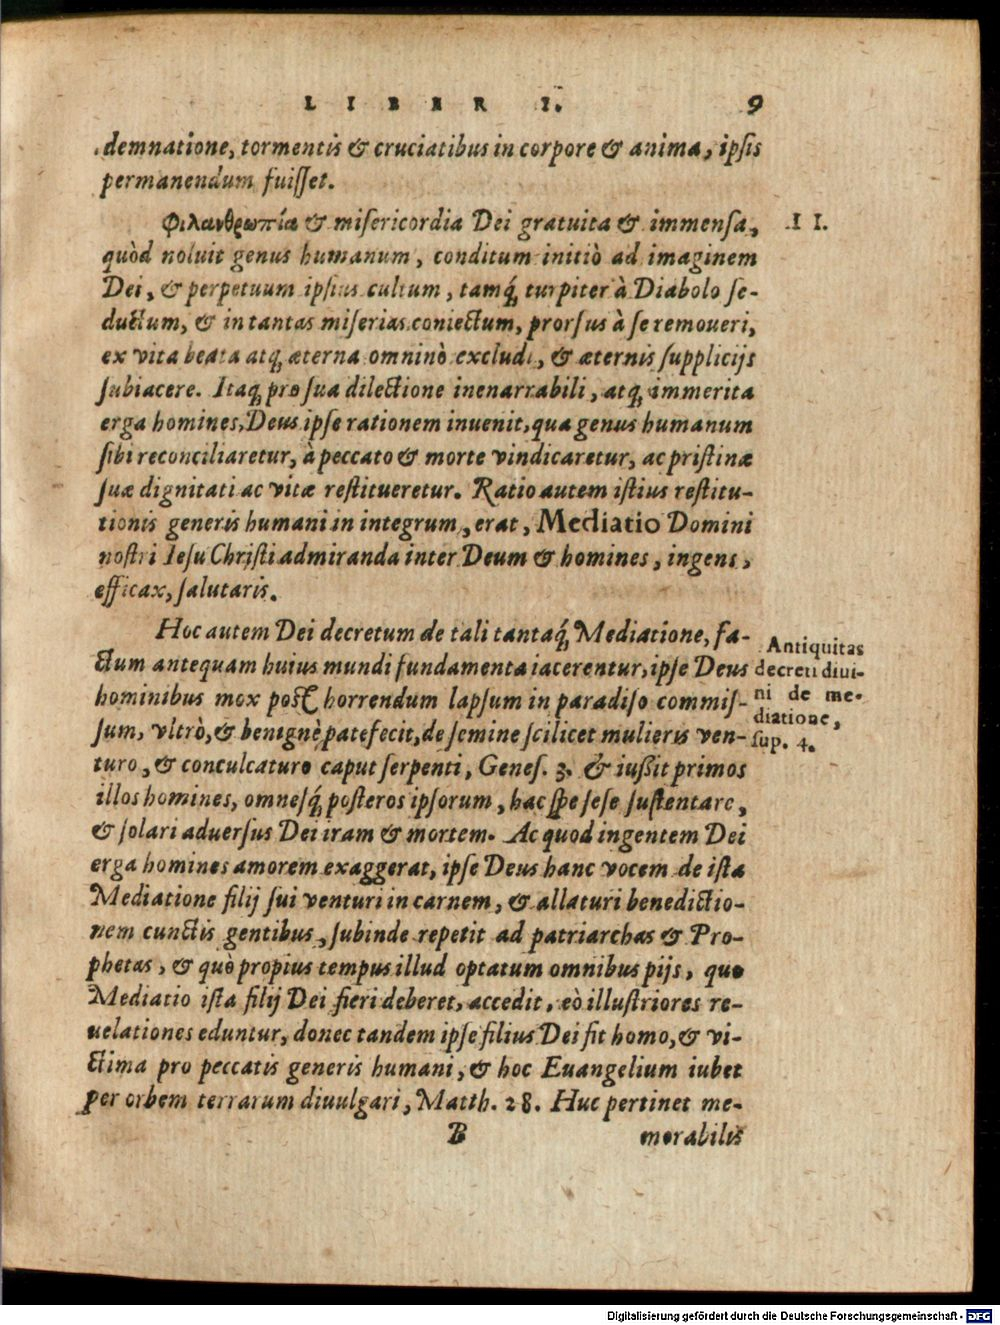 LIBER I. 9
demnatione, tormentis & cruciatibus in corpore & anima, ipsis
permanendum fuisset.
Φιλανθρωπία & misericordia Dei gratuita & immensa, II.
quòd noluit genus humanum, conditum initiò ad imaginem
Dei, & perpetuum ipsius cultum, tamq́; turpiter à Diabolo se-
ductum, & in tantas miserias coniectum, prorsus à se remoueri,
ex vita beata atq; æterna omninò excludi, & æternis supplicijs
subiacere. Itaq; pro sua dilectione inenarrabili, atq; immerita
erga homines, Deus ipse rationem inuenit, qua genus humanum
sibi reconciliaretur, à peccato & morte vindicaretur, ac pristinæ
suæ dignitati ac vitæ restitueretur. Ratio autem istius restitu-
tionis generis humani in integrum, erat, Mediatio Domini
nostri Iesu Christi admiranda inter Deum & homines, ingens,
efficax, salutaris.
Hoc autem Dei decretum de tali tantaq́; Mediatione, fa-
ctum antequam huius mundi fundamenta iacerentur, ipse Deus
hominibus mox post horrendum lapsum in paradiso commis-
sum, vltrò, & benignè patefecit, de semine scilicet mulieris ven-
turo, & conculcaturo caput serpenti, Genes. 3. & iußit primos
illos homines, omnesq́; posteros ipsorum, hac spe sese sustentare,
& solari aduersus Dei iram & mortem. Ac quod ingentem Dei
erga homines amorem exaggerat, ipse Deus hanc vocem de ista
Mediatione filij sui venturi in carnem, & allaturi benedictio-
nem cunctis gentibus, subinde repetit ad patriarchas & Pro-
phetas, & quò propius tempus illud optatum omnibus pijs, quo
Mediatio ista filij Dei fieri deberet, accedit, eò illustriores re-
uelationes eduntur, donec tandem ipse filius Dei fit homo, & vi-
ctima pro peccatis generis humani, & hoc Euangelium iubet
per orbem terrarum diuulgari, Matth. 28. Huc pertinet me-
B morabilis
Antiquitas
decreti diui-
ni de me-
diatione,
sup. 4.
Digitalisierung gefördert durch die Deutsche Forschungsgemeinschaft - DFG